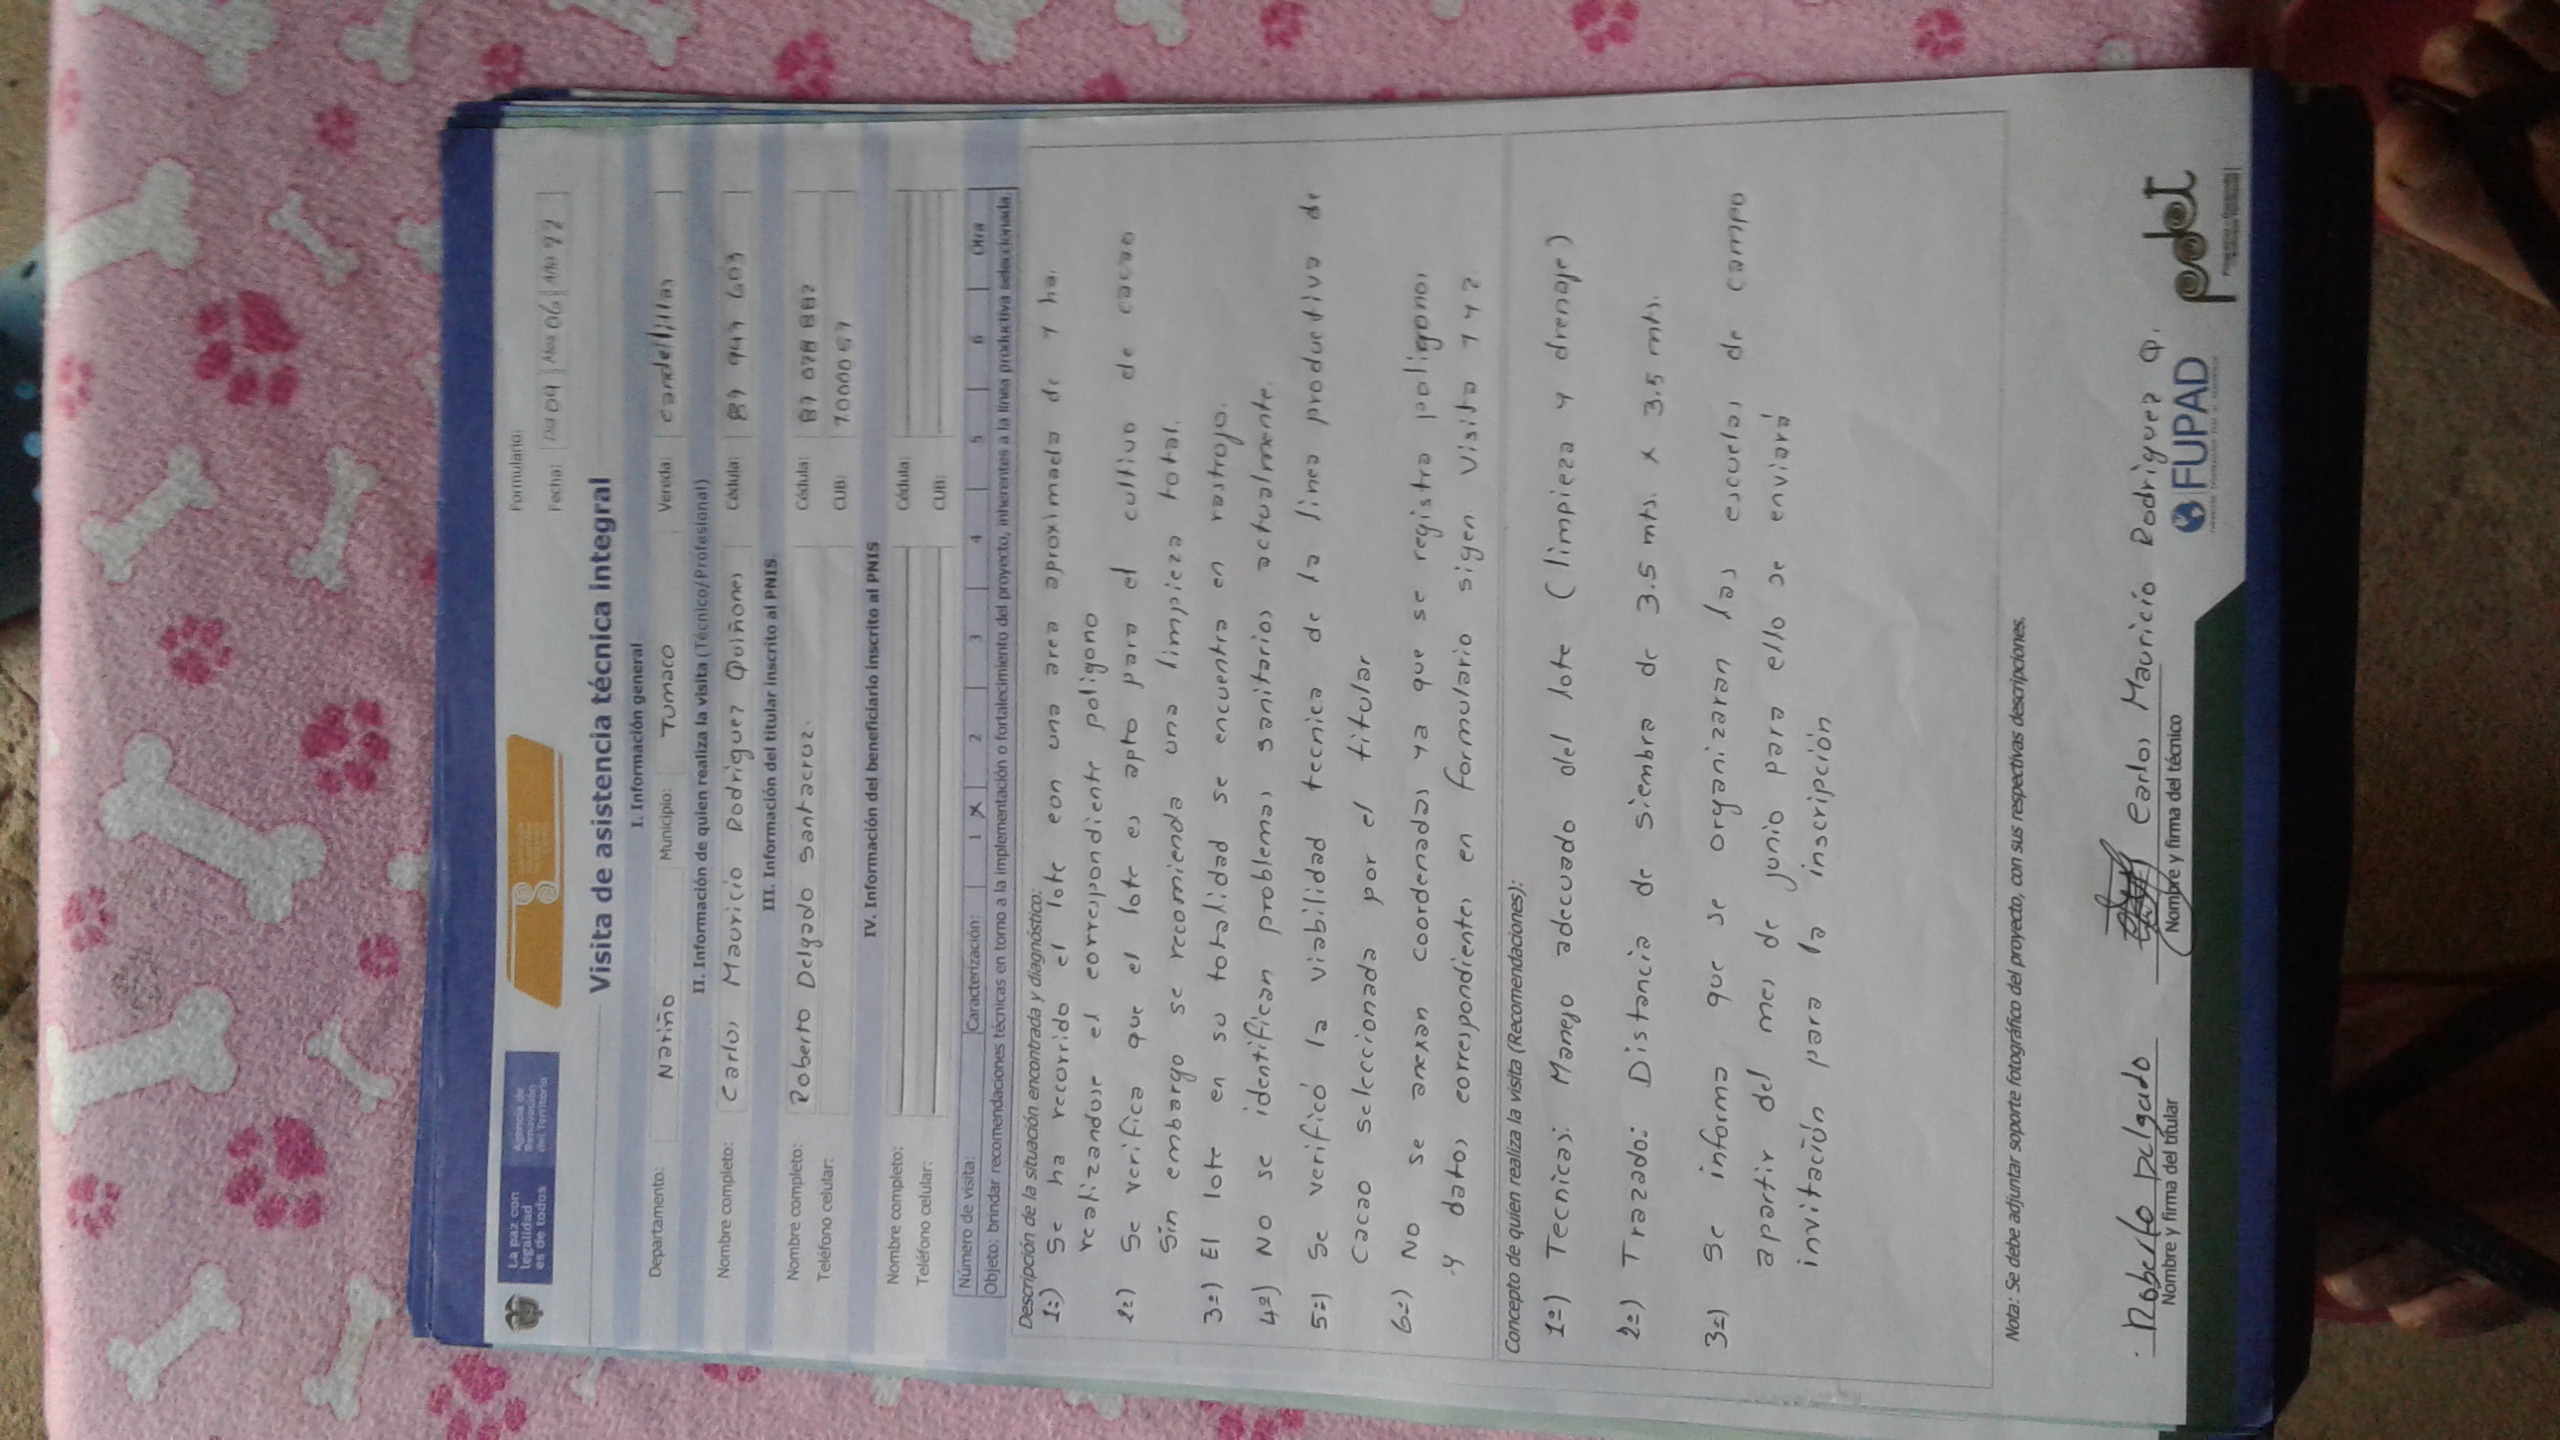 La paz con
legalidad
es de todos
Agencia de
Renovación
del Territorio
Formulario:
Fecha: Día 09 Mes 06 Año 22
Visita de asistencia técnica integral
I. Información general
Departamento: Nariño Municipio: Tumaco Vereda: candelillas
II. Información de quien realiza la visita (Técnico/Profesional)
Nombre completo: Carlos Mauricio Rodriguez Quiñones Cédula: 87 947 603
III. Información del titular inscrito al PNIS
Nombre completo: Roberto Delgado Santacruz. Cédula: 87 028 882
Teléfono celular: CUB: 1000057
IV. Información del beneficiario inscrito al PNIS
Nombre completo: Cédula:
Teléfono celular: CUB:
Número de visita: Caracterización: 1 X 2 3 4 5 6 Otra
Objeto: brindar recomendaciones técnicas en torno a la implementación o fortalecimiento del proyecto, inherentes a la línea productiva seleccionada.
Descripción de la situación encontrada y diagnóstico:
1=) Se ha recorrido el lote con una area aproximada de 1 ha.
realizandose el correspondiente poligono
2=) Se verifica que el lote es apto para el cultivo de cacao
sin embargo se recomienda una limpieza total.
3=) El lote en su totalidad se encuentra en rastrojo.
4=) No se identifican problemas sanitarios actualmente.
5=) Se verificó la viabilidad tecnica de la linea productiva de
cacao seleccionada por el titular
6=) No se anexan coordenadas ya que se registra poligonos
y datos correspondientes en formulario sigen visita 142
Concepto de quien realiza la visita (Recomendaciones):
1=) Tecnicas: Manejo adecuado del lote (limpieza y drenaje)
2=) Trazado: Distancia de siembra de 3.5 mts. x 3.5 mts.
3=) Se informa que se organizaran las escuelas de campo
apartir del mes de junio para ello se enviará
invitación para la inscripción
Nota: Se debe adjuntar soporte fotográfico del proyecto, con sus respectivas descripciones.
Roberto Delgado Carlos Mauricio Rodriguez Q.
Nombre y firma del titular Nombre y firma del técnico
FUPAD
pdet